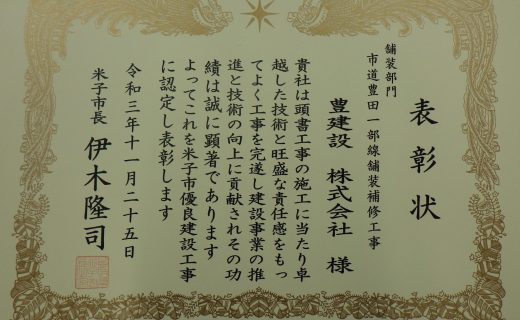 表彰状
舗装部門
市道豊田一部線舗装補修工事
豊建設 株式会社 様
貴社は頭書工事の施工に当たり卓
越した技術と旺盛な責任感をもっ
てよく工事を完遂し建設事業の推
進と技術の向上に貢献されその功
績は誠に顕著であります
よってこれを米子市優良建設工事
に認定し表彰します
令和三年十一月二十五日
米子市長 伊木隆司